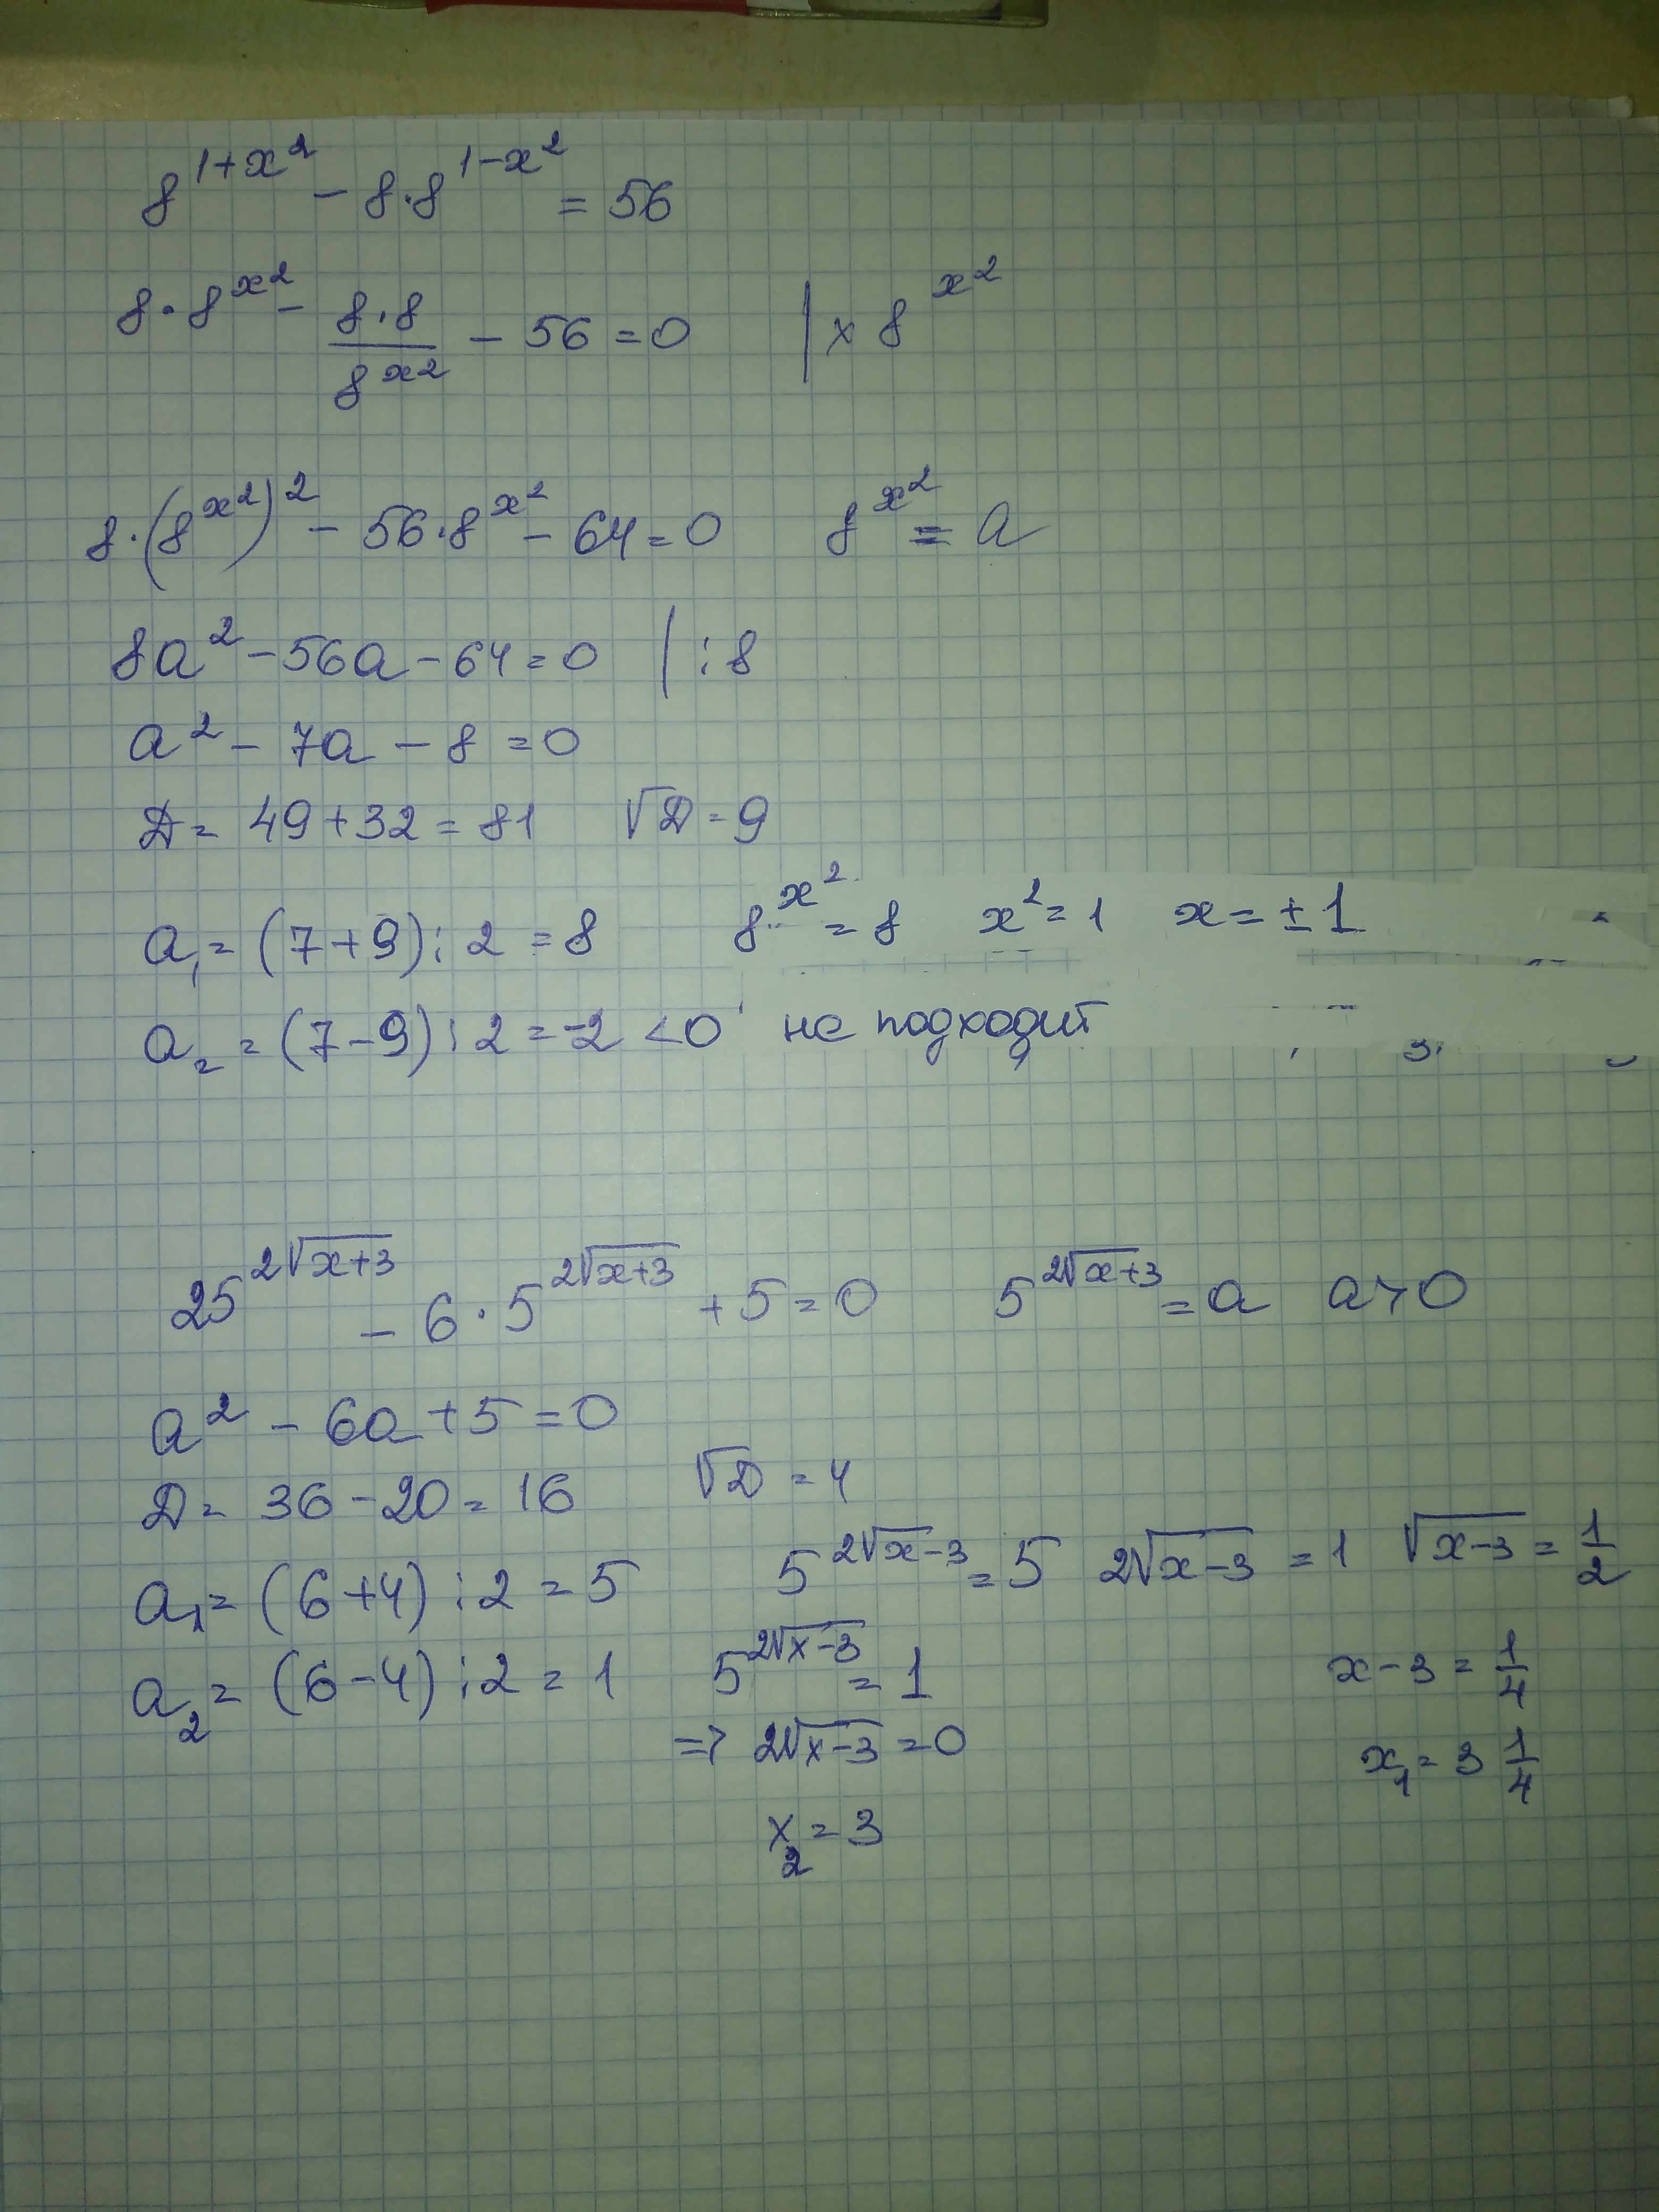 8^(1+x²) - 8·8^(1-x²) = 56
8·8^(x²) - (8·8)/(8^(x²)) - 56 = 0 | × 8^(x²)
8·(8^(x²))² - 56·8^(x²) - 64 = 0 8^(x²) = a
8a² - 56a - 64 = 0 | : 8
a² - 7a - 8 = 0
D = 49 + 32 = 81 √D = 9
a₁ = (7+9) : 2 = 8 8^(x²) = 8 x² = 1 x = ±1
a₂ = (7-9) : 2 = -2 < 0 не подходит
25^(2√(x+3)) - 6·5^(2√(x+3)) + 5 = 0 5^(2√(x+3)) = a a > 0
a² - 6a + 5 = 0
D = 36 - 20 = 16 √D = 4
a₁ = (6+4) : 2 = 5 5^(2√(x-3)) = 5 2√(x-3) = 1 √(x-3) = 1/2
a₂ = (6-4) : 2 = 1 5^(2√(x-3)) = 1 x - 3 = 1/4
=> 2√(x-3) = 0 x₁ = 3 1/4
x₂ = 3